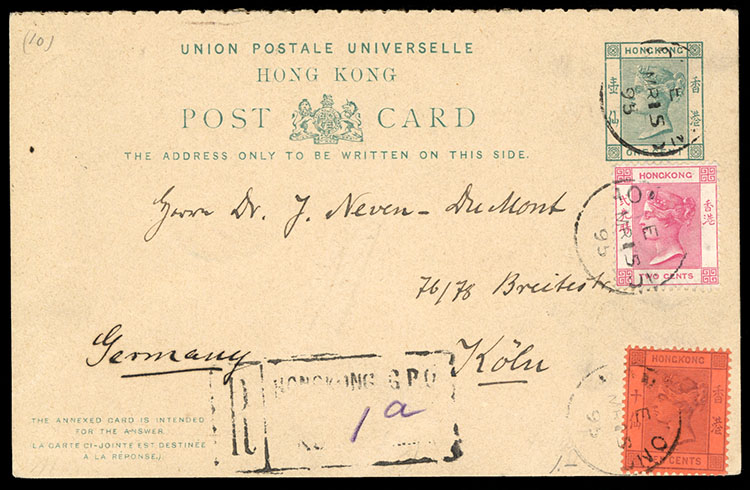 (10)
UNION POSTALE UNIVERSELLE
HONG KONG
POST CARD
THE ADDRESS ONLY TO BE WRITTEN ON THIS SIDE.
HONGKONG
壹仙
香港
ONE
E
MR 15
95
Herrn Dr. J. Neven-DuMont
76/78 Breitestr
Köln
Germany
HONGKONG
香港
CENTS
E
MR 15
95
R
HONGKONG G.P.O
1a
HONGKONG
十
CENTS
THE ANNEXED CARD IS INTENDED
FOR THE ANSWER.
LA CARTE CI-JOINTE EST DESTINÉE
À LA RÉPONSE.